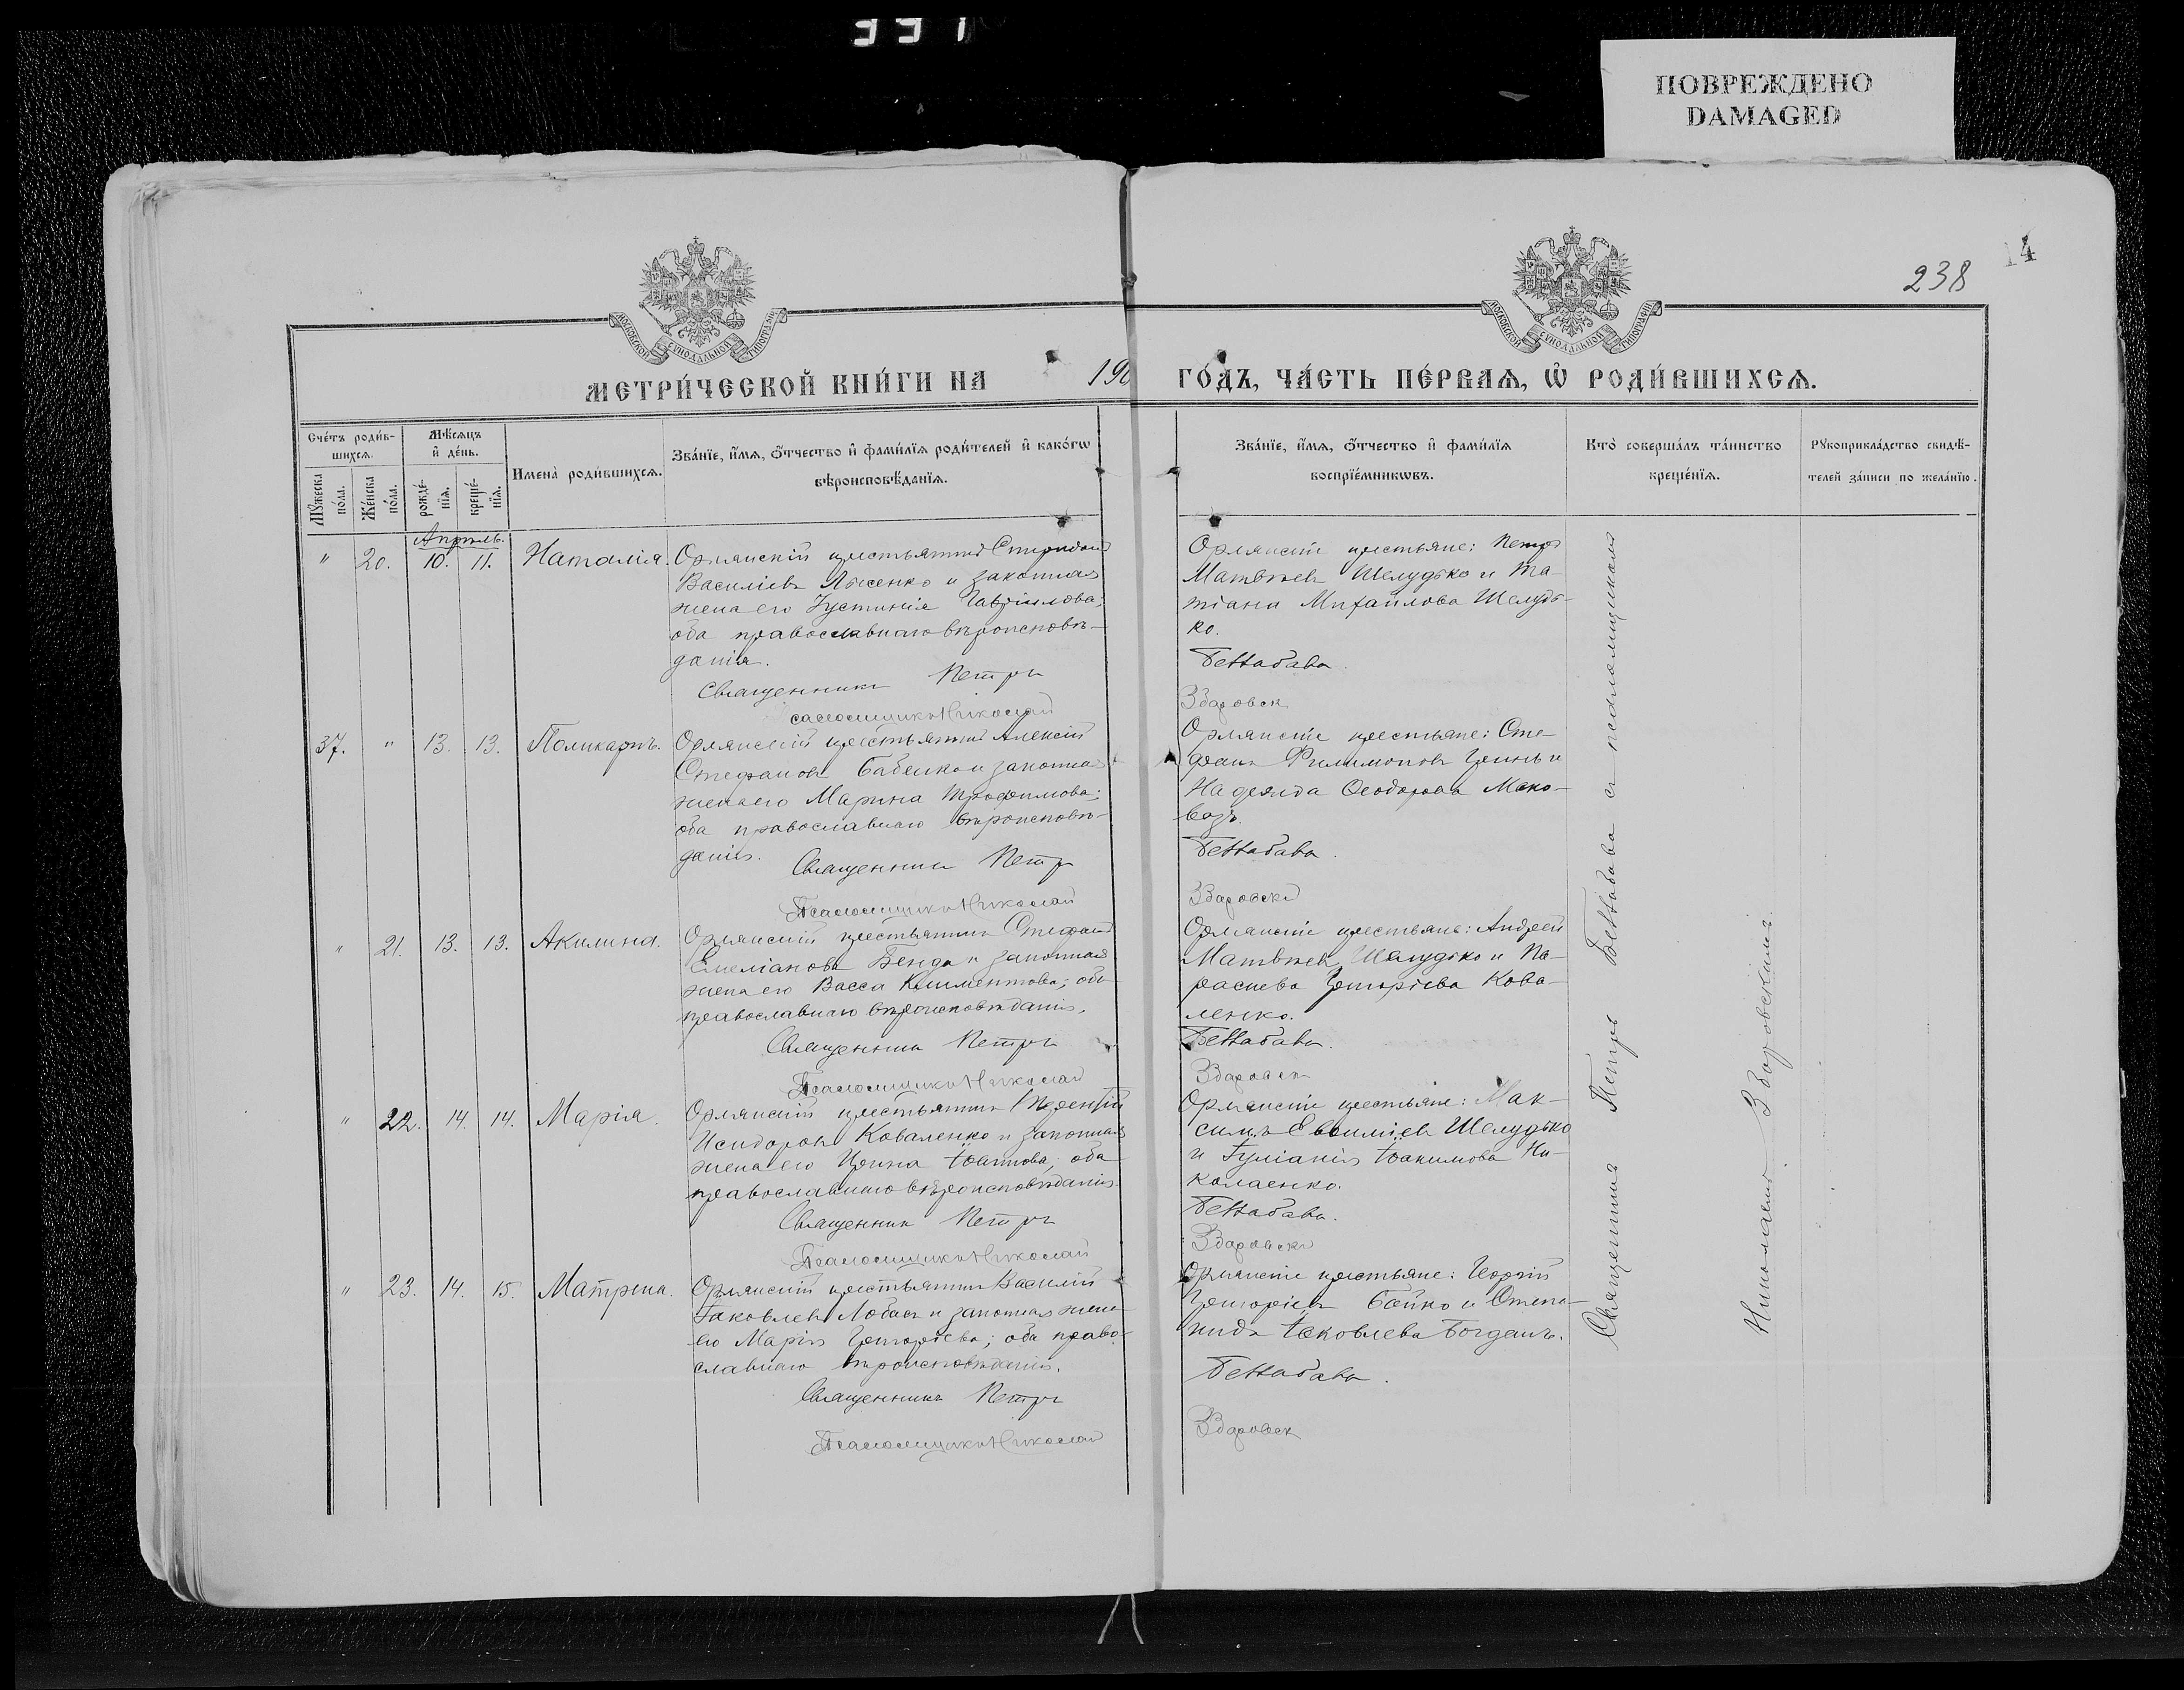 337
ПОВРЕЖДЕНО
DAMAGED
14
238
МОСКОВСКОЙ СѴНОДАЛЬНОЙ ТИПОГРАФІИ
МОСКОВСКОЙ СѴНОДАЛЬНОЙ ТИПОГРАФІИ
МЕТРИ́ЧЕСКОЙ КНИ́ГИ НА 190 ГО́ДЪ, ЧА́СТЬ ПЕ́РВАѦ, Ѡ҆ РОДИ́ВШИХСѦ.
Сче́тъ роди́в-
шихсѧ.
Мꙋ́жеска по́ла.
Же́нска по́ла.
Мѣ́сѧцъ
и҆ де́нь.
рожде́-нїѧ.
креще́-нїѧ.
Имена̀ роди́вшихсѧ.
Зва́нїе, и҆́мѧ, ѻ҆́тчество и҆ фами́лїѧ роди́телей и҆ како́гѡ
вѣроисповѣ́данїѧ.
Зва́нїе, и҆́мѧ, ѻ҆́тчество и҆ фами́лїѧ
воспрїе́мникѡвъ.
Кто̀ соверша́лъ та́инство
креще́нїѧ.
Рꙋкоприкла́дство свидѣ́-
телей за́писи по жела́нїю.
Апрѣль.
" 20. 10. 11. Наталія.
Орлянскій крестьянинъ Спиридонъ
Василіевъ Лысенко и законная
жена его Іустинія Гавріилова;
оба православнаго вѣроисповѣ-
данія.
Священникъ Петръ
псаломщикъ Николай
Орлянскіе крестьяне: Петръ
Матвѣевъ Шелудько и Та-
тіана Михайлова Шелудь-
ко.
Беттабава.
Здаровск
37. " 13. 13. Поликарпъ.
Орлянскій крестьянинъ Алексій
Стефановъ Бабенко и законная
жена его Марина Трофимова;
оба православнаго вѣроисповѣ-
данія.
Священникъ Петръ
Псаломщикъ Николай
Орлянскіе крестьяне: Сте-
фанъ Филимоновъ Гринь и
Надежда Ѳеодорова Мако-
возъ.
Беттабава.
Здаровскі
" 21. 13. 13. Акилина.
Орлянскій крестьянинъ Стефанъ
Емеліановъ Бенда и законная
жена его Васса Климентова; оба
православнаго вѣроисповѣданія.
Священникъ Петръ
Псаломщикъ Николай
Орлянскіе крестьяне: Андрей
Матвѣевъ Шелудько и Па-
раскева Григоріева Кова-
ленко.
Беттабава.
Здаровск
" 22. 14. 14. Марія.
Орлянскій крестьянинъ Терентій
Исидоровъ Коваленко и законная
жена его Ирина Іоаннова; оба
православнаго вѣроисповѣданія.
Священникъ Петръ
Псаломщикъ Николай
Орлянскіе крестьяне: Мак-
симъ Евѳиміевъ Шелудько
и Іуліанія Іоакимова Ни-
колаенко.
Беттабава.
Здаровскі
" 23. 14. 15. Матрона.
Орлянскій крестьянинъ Василій
Іаковлевъ Лобасъ и законная жена
его Марія Григоріева; оба право-
славнаго вѣроисповѣданія.
Священникъ Петръ
Псаломщикъ Николай
Орлянскіе крестьяне: Георгій
Григоріевъ Бойко и Степа-
нида Іаковлева Богданъ.
Беттабава.
Здаровск
Священникъ Петръ Беттабава съ псаломщикомъ
Николаемъ Здоровскимъ.